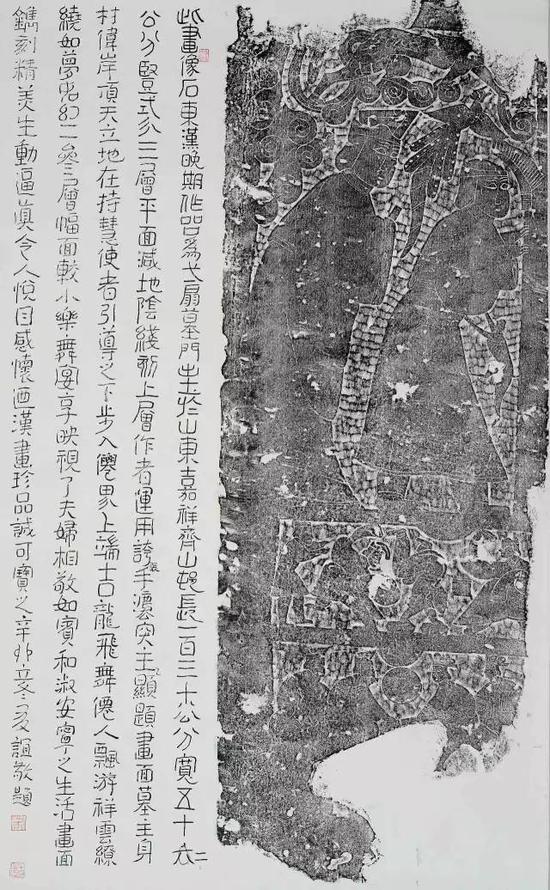 此畫像石東漢晚期作品為戈扇墓門出於山東嘉祥齊山邨長一百三十公分寬五十六
公分豎式分三層平面減地陰綫刻上層作者運用誇張手灋突主顯題畫面墓主身
材偉岸頂天立地在持慧使者引導之下步入僊界上端吉龍飛舞僊人飄游祥雲繚
繞如夢如幻二叁層幅面較小樂舞宴享映視了夫婦相敬如賓和淑安寧之生活畫面
鐫刻精美生動逼真令人悅目感懷迺漢畫珍品誠可寶之辛卯立冬友誼敬題